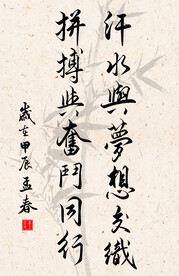 汗水與夢想交織
拼搏與奮鬥同行
歲在甲辰孟春